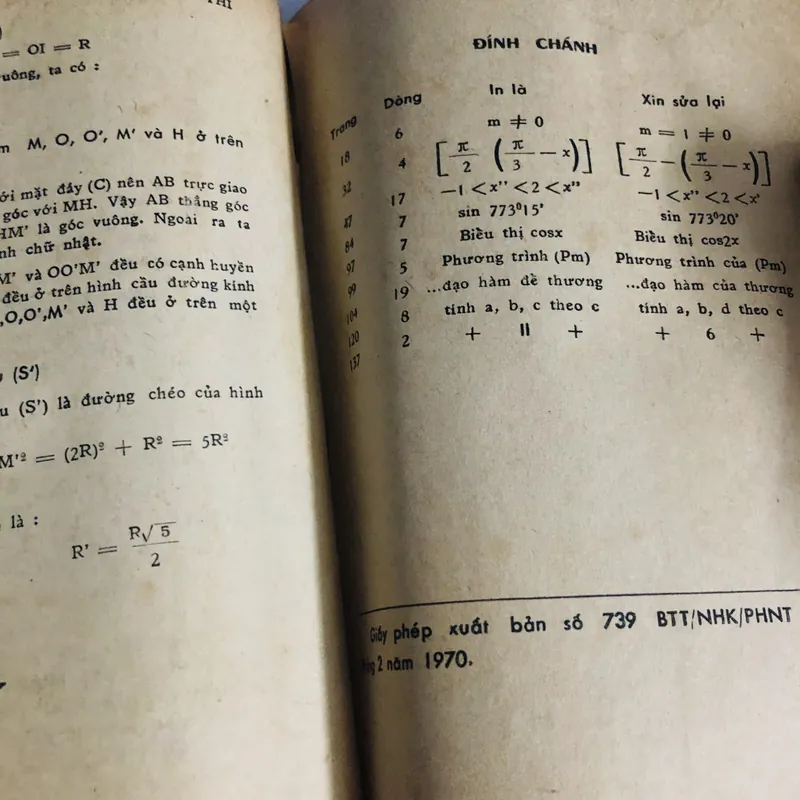 THỊ
= OI = R
uông, ta có :
M, O, O', M' và H ở trên
ới mặt đáy (C) nên AB trực giao
góc với MH. Vậy AB thẳng góc
HM' là góc vuông. Ngoài ra ta
nh chữ nhật.
M' và OO'M' đều có cạnh huyền
đều ở trên hình cầu đường kính
,O,O',M' và H đều ở trên một
(S')
u (S') là đường chéo của hình
M'² = (2R)² + R² = 5R²
là :
R' = R√5 / 2
ĐÍNH CHÁNH
Trang Dòng In là Xin sửa lại
18 6 m ≠ 0 m = 1 ≠ 0
32 4 [π/2 (π/3 − x)] [π/2 − (π/3 − x)]
17 −1 < x" < 2 < x" −1 < x" < 2 < x'
84 7 sin 773°15' sin 773°20'
97 7 Biểu thị cosx Biểu thị cos2x
99 5 Phương trình (Pm) Phương trình của (Pm)
104 19 ...đạo hàm đề thương ...đạo hàm của thương
120 8 tính a, b, c theo c tính a, b, d theo c
137 2 + 11 + + 6 +
Giấy phép xuất bản số 739 BTT/NHK/PHNT
2 năm 1970.